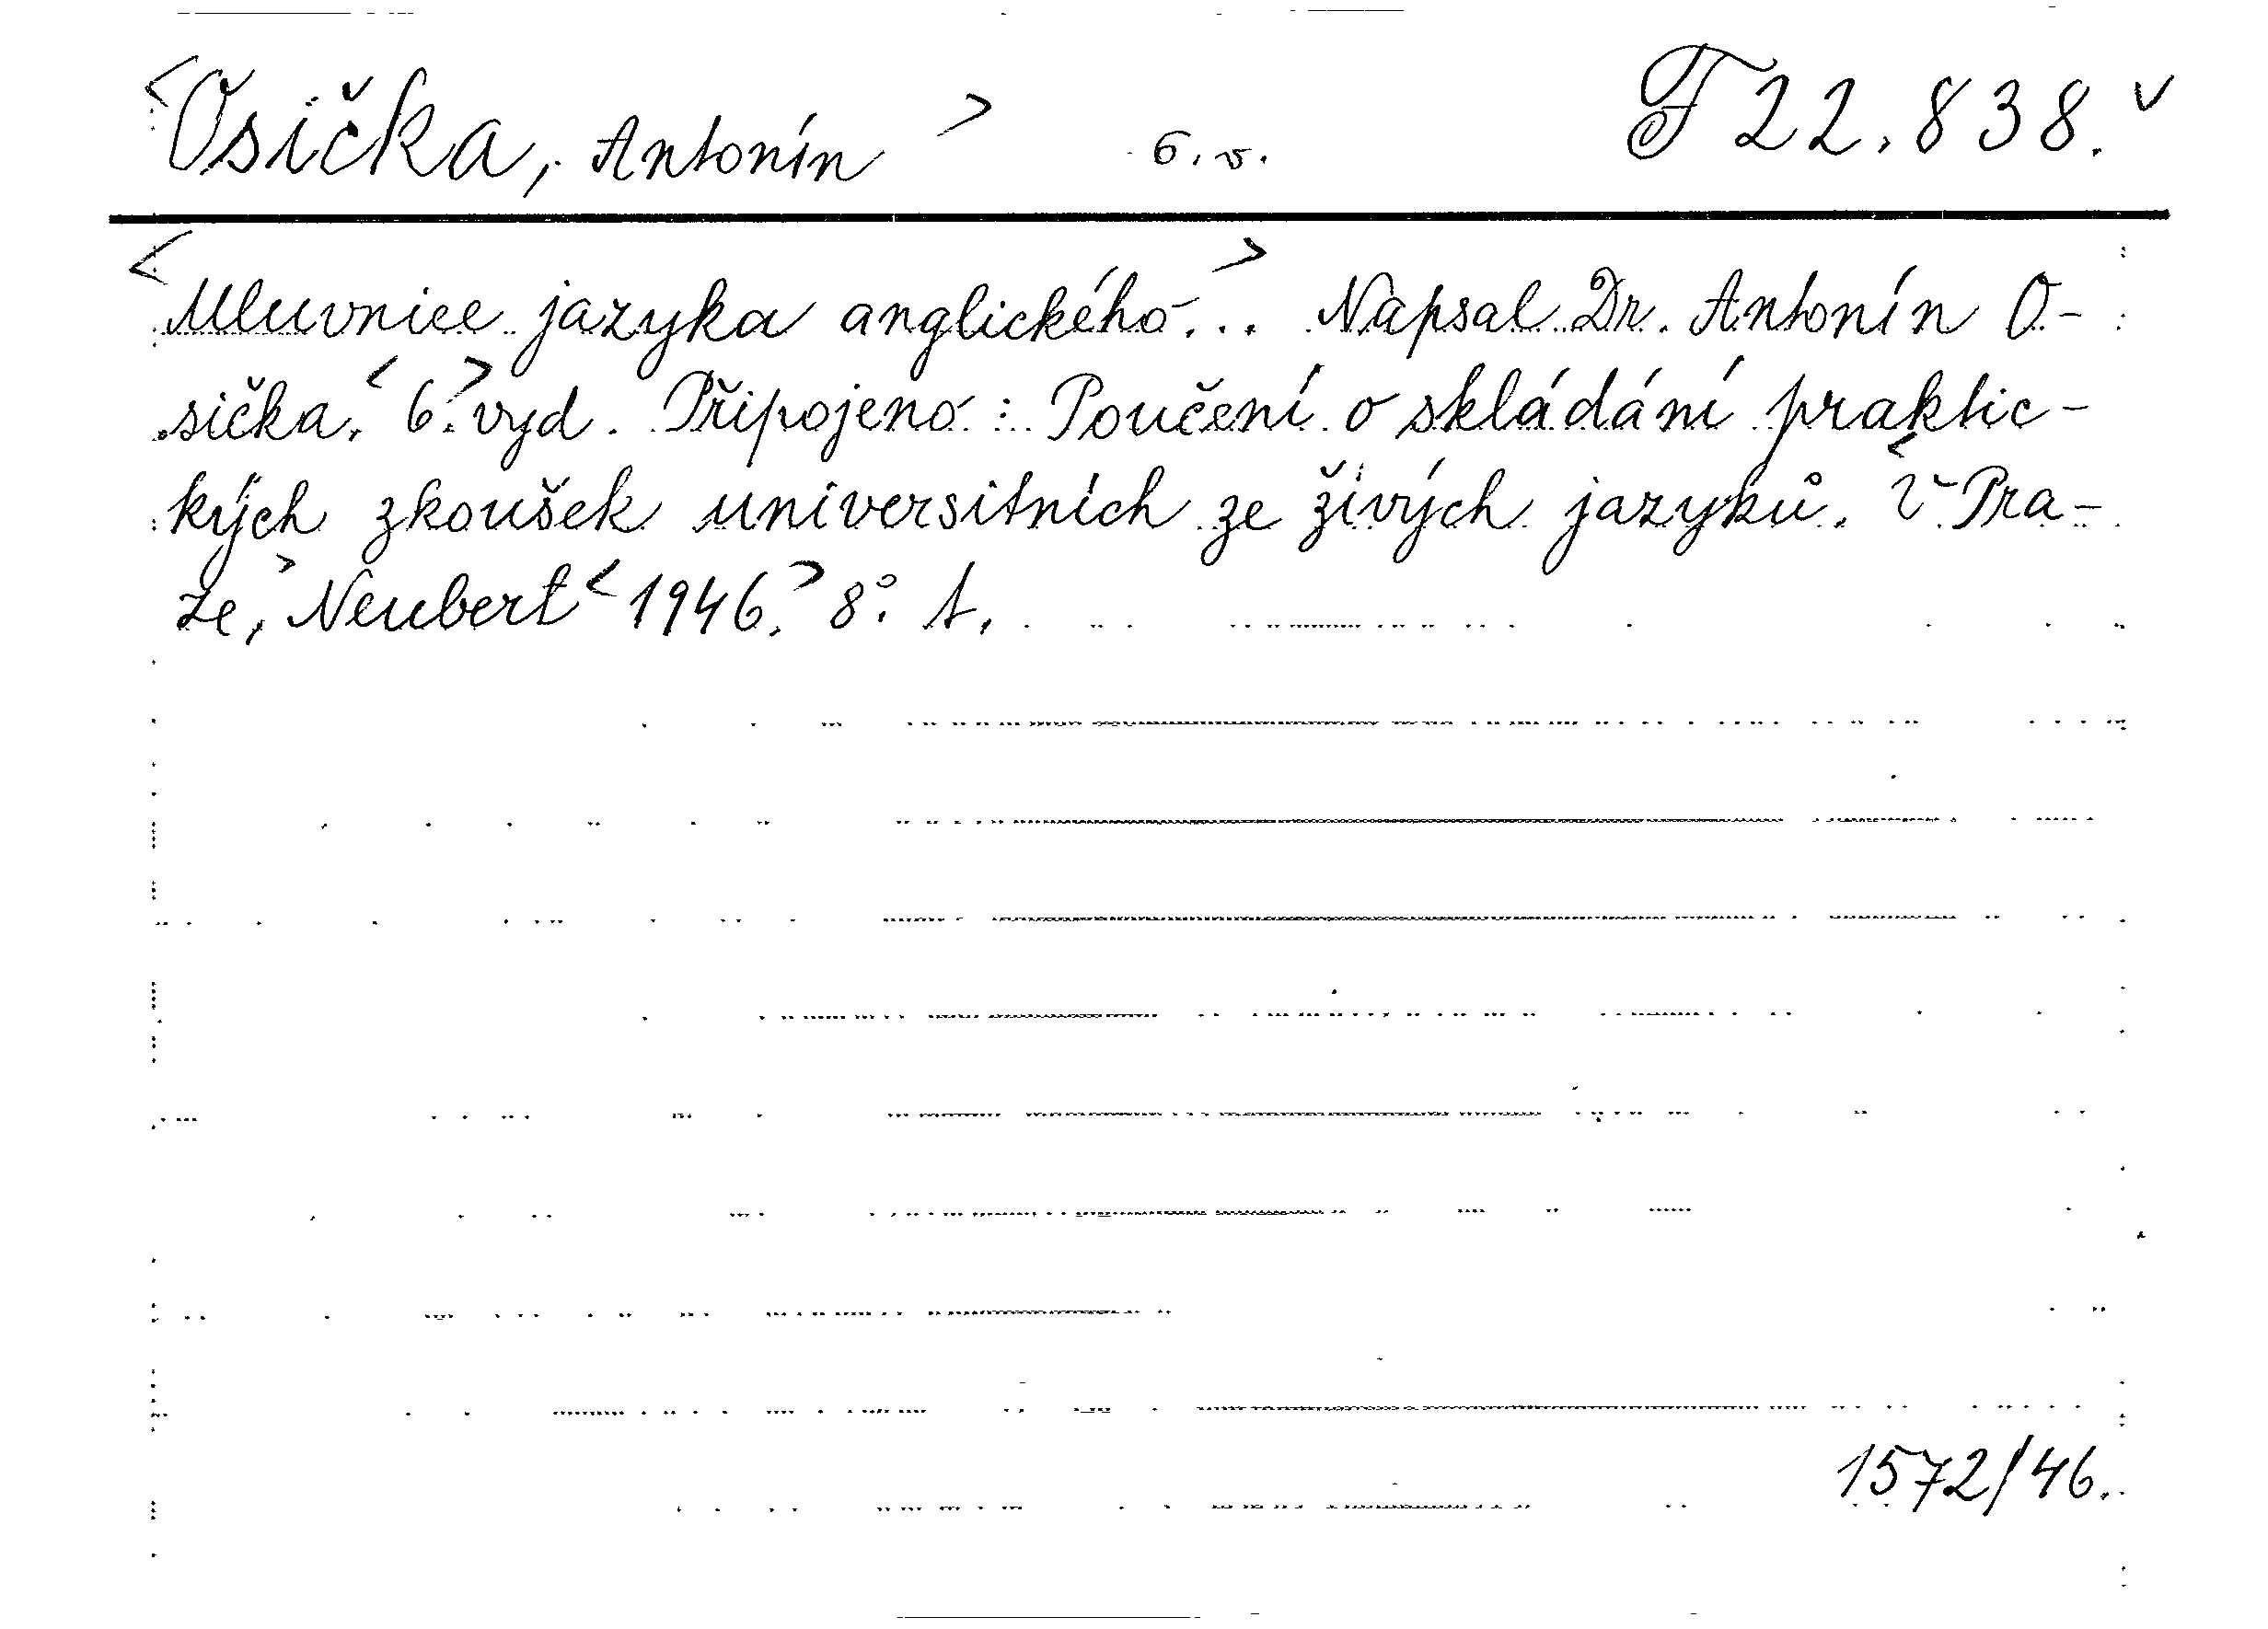 <Osička, Antonín> 6.v. F 22.838.
<Mluvnice jazyka anglického...> Napsal Dr. Antonín O-
sička. <6.> vyd. Připojeno: Poučení o skládání praktic-
kých zkoušek universitních ze živých jazyků. <V Pra-
ze,> Neubert <1946.> 8°. t.
1572/46.